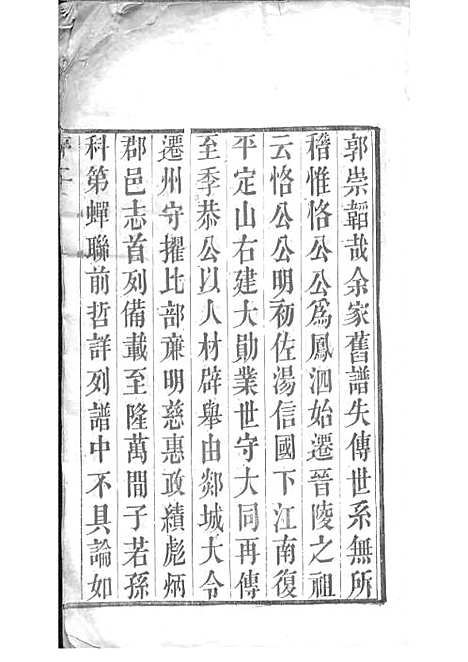 郭崇韜哉余家舊譜失傳世系無所
稽惟恪公公爲鳳泗始遷晉陵之祖
云恪公公明初佐湯信國下江南復
平定山右建大勛業世守大同再傳
至季恭公以人材辟舉由郯城大令
遷州守擢比部亷明慈惠政績彪炳
郡邑志首列備載至隆萬間子若孫
科第蟬聯前哲詳列譜中不具論如